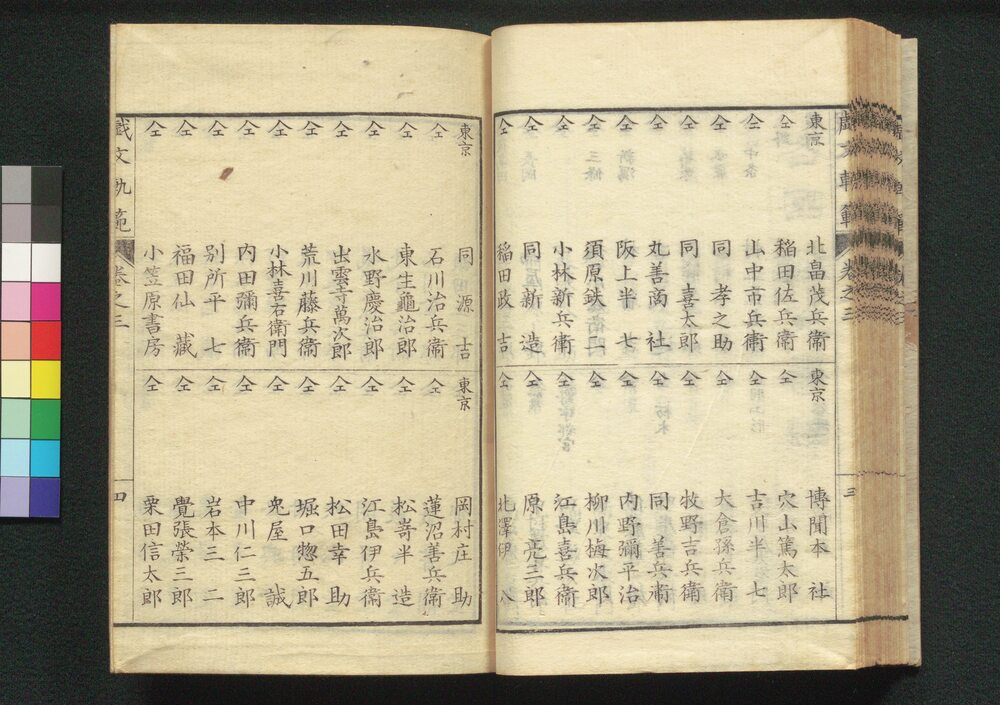 戯文軌範 巻之三 三
東京 北畠茂兵衛
仝 稲田佐兵衛
仝 山中市兵衛
仝 同 孝之助
仝 同 喜太郎
仝 丸善商社
仝 阪上半七
仝 須原鉄二
仝 小林新兵衛
仝 同 新造
仝 稲田政吉
東京 博聞本社
仝 穴山篤太郎
仝 吉川半七
仝 大倉孫兵衛
仝 牧野吉兵衛
仝 同 善兵衛
仝 内野彌平治
仝 柳川梅次郎
仝 江島喜兵衛
仝 原 亮三郎
仝 北澤伊八
東京 同 源吉
仝 石川治兵衛
仝 東生龜治郎
仝 水野慶治郎
仝 出雲寺萬次郎
仝 荒川藤兵衛
仝 小林喜右衛門
仝 内田彌兵衛
仝 別所平七
仝 福田仙藏
仝 小笠原書房
東京 岡村庄助
仝 蓮沼善兵衛
仝 松嵜半造
仝 江島伊兵衛
仝 松田幸助
仝 堀口惣五郎
仝 兔屋 誠
仝 中川仁三郎
仝 岩本三二
仝 覺張榮三郎
仝 栗田信太郎
戯文軌範 巻之三 四